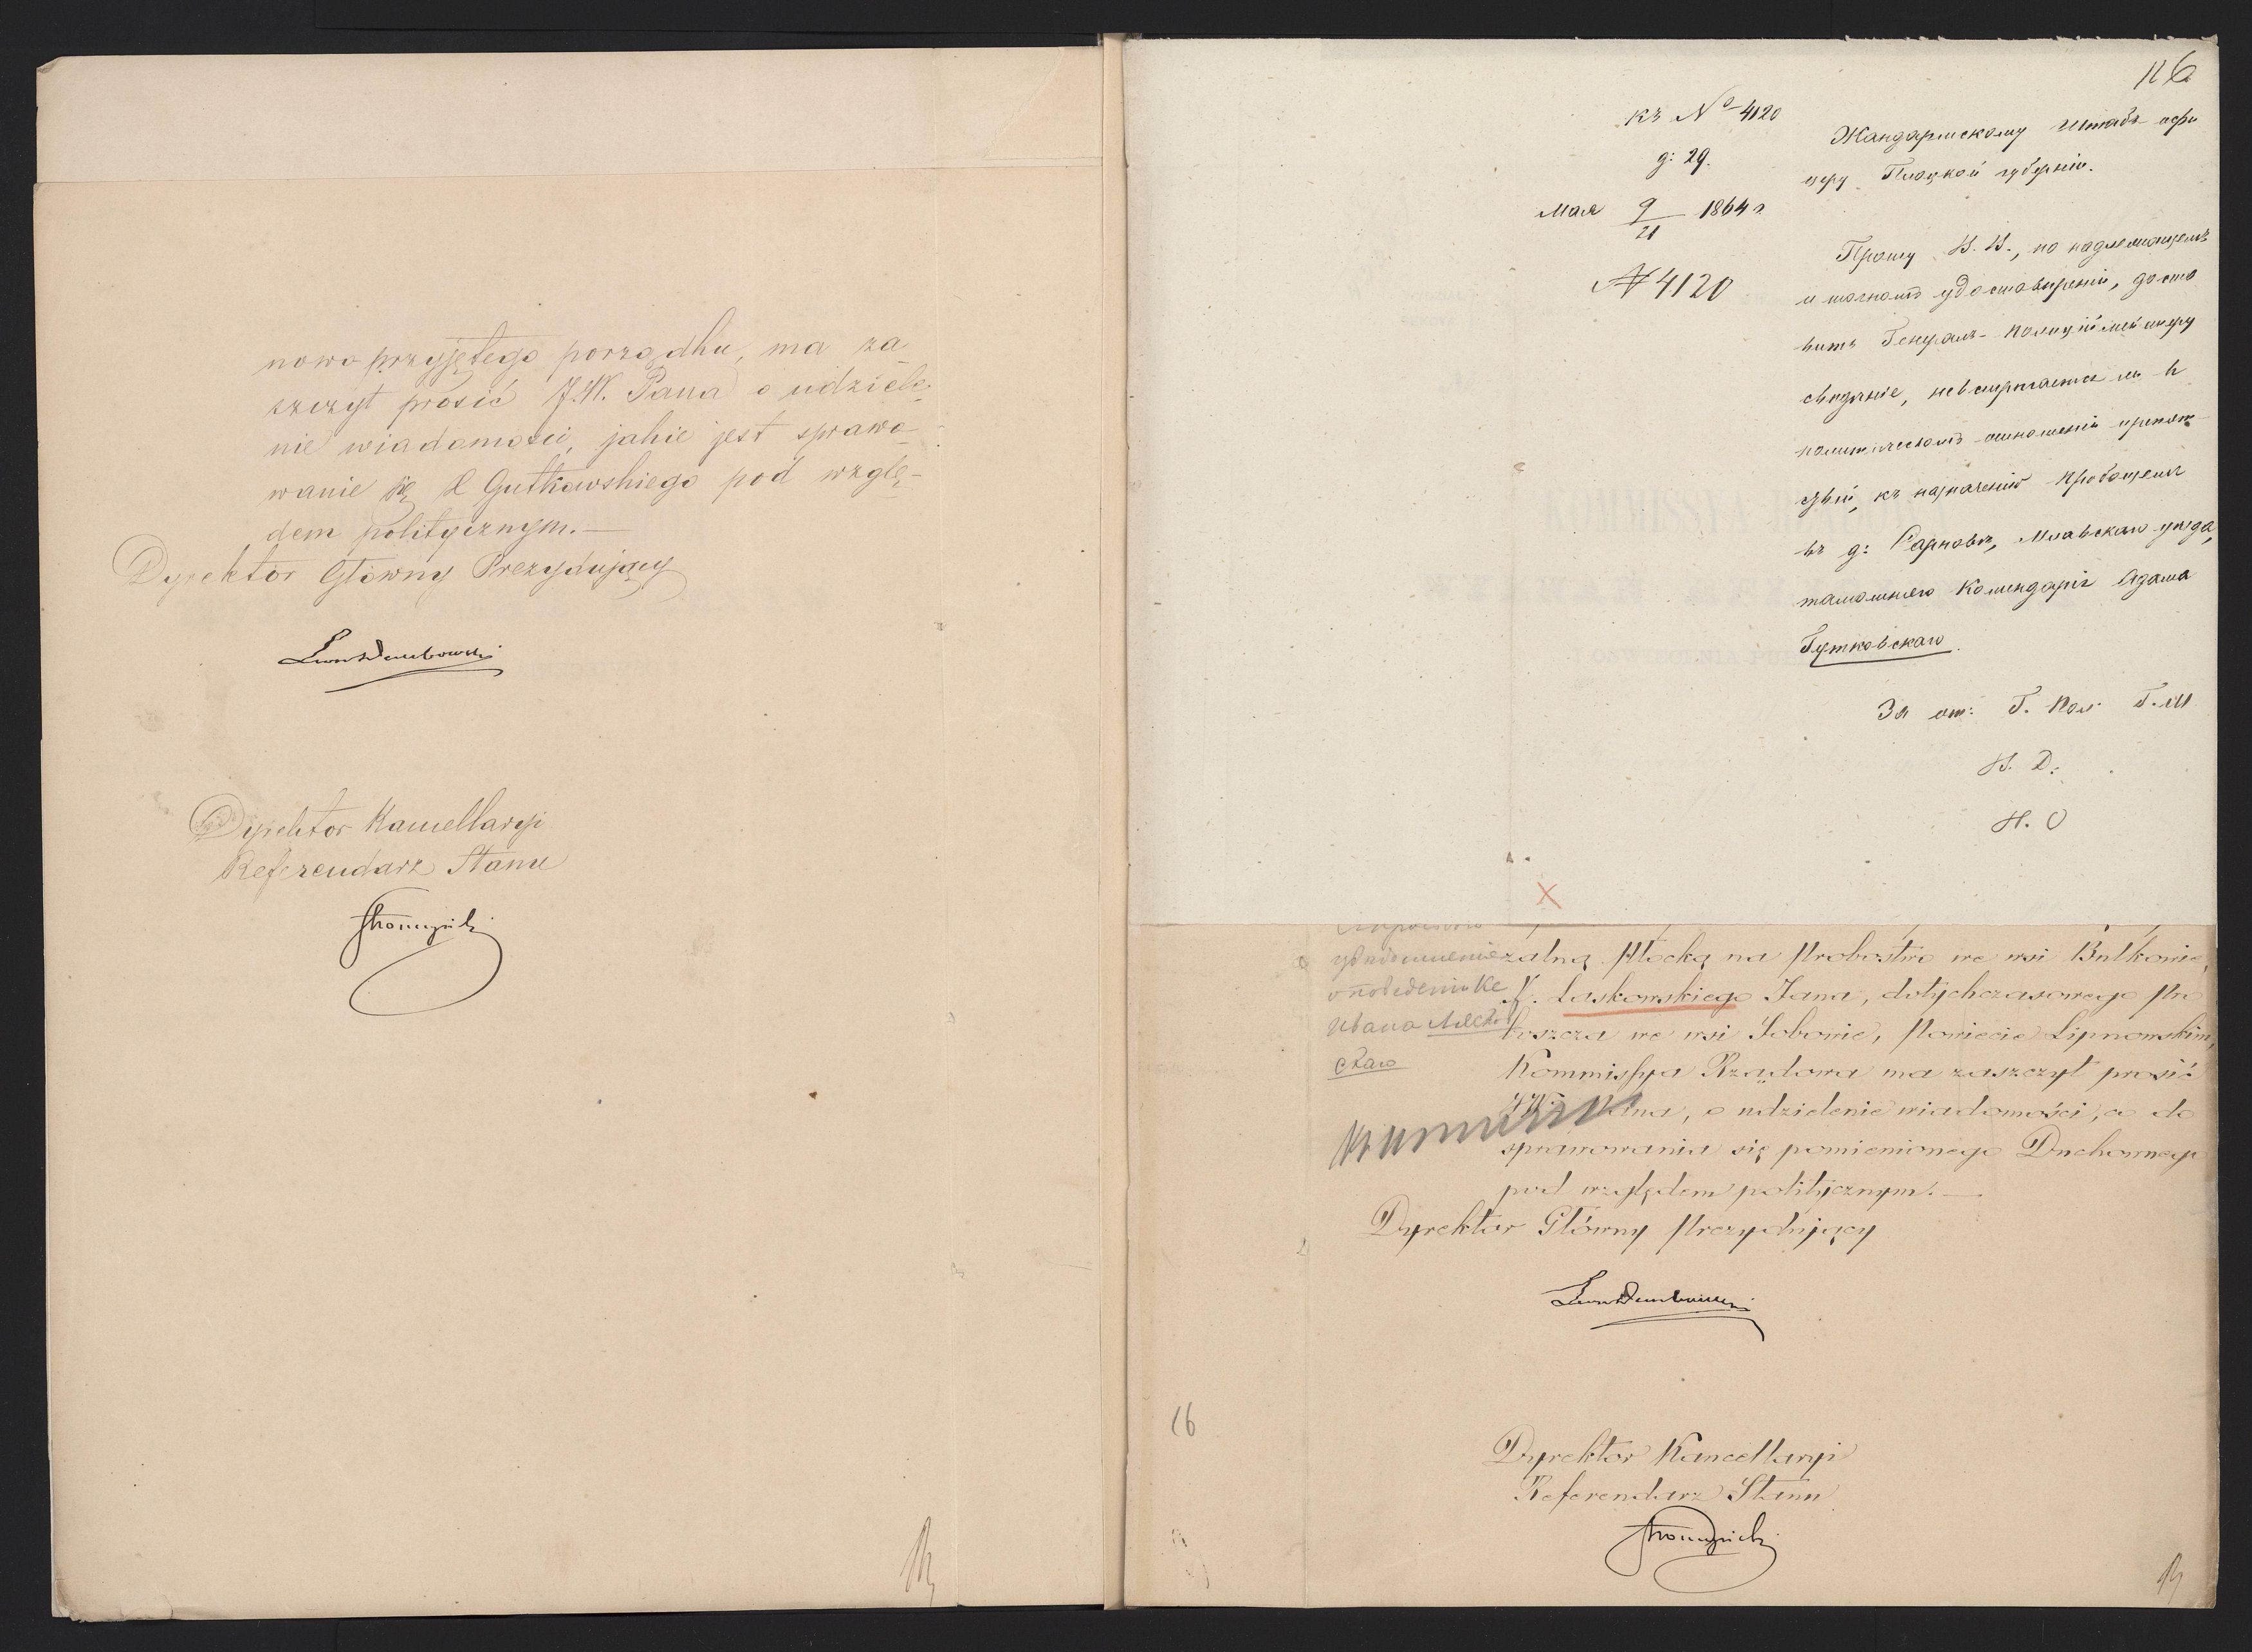 nowo przyjętego porządku, ma za
szczyt prosić J.W. Pana o udziele-
nie wiadomości, jakie jest sprawo
wanie się X Gutkowskiego pod wzglę-
dem politycznym.—
Dyrektor Główny Prezydujący
Dyrektor Kancellaryi
Referendarz Stanu
116
къ № 4120
д: 29.
Мая 9/21 1864 г
№ 4120
Жандармскому Штабъ офи
церу Плоцкой губерніи.
Прошу В. В., по надлежащемъ
и точномъ удостовѣреніи, доста
вить Генералъ-Полицiймейстеру
свѣдѣніе, не встрѣчается ли въ
политическомъ отношеніи препят
ствій, къ назначенію Пробощемъ
въ д: Сарновѣ, Млавскаго уѣзда,
тамошняго Комендарія Адама
Гутковскаго.
За от: Г. Пол. Г.М
Н. Д:
Н. О
X
zalną Płocką na Probostwo we wsi Bulkowie,
X. Laskowskiego Jana, dotychczasowego Pro
boszcza we wsi Sobowie, Powiecie Lipnowskim,
Kommissya Rządowa ma zaszczyt prosić
JW. Pana, o udzielenie wiadomości, co do
sprawowania się pomienionego Duchownego
pod względem politycznym.—
Dyrektor Główny Prezydujący
уведомление
о поведении Кс
Ивана Ляско
скаго
16
Dyrektor Kancellaryi
Referendarz Stanu